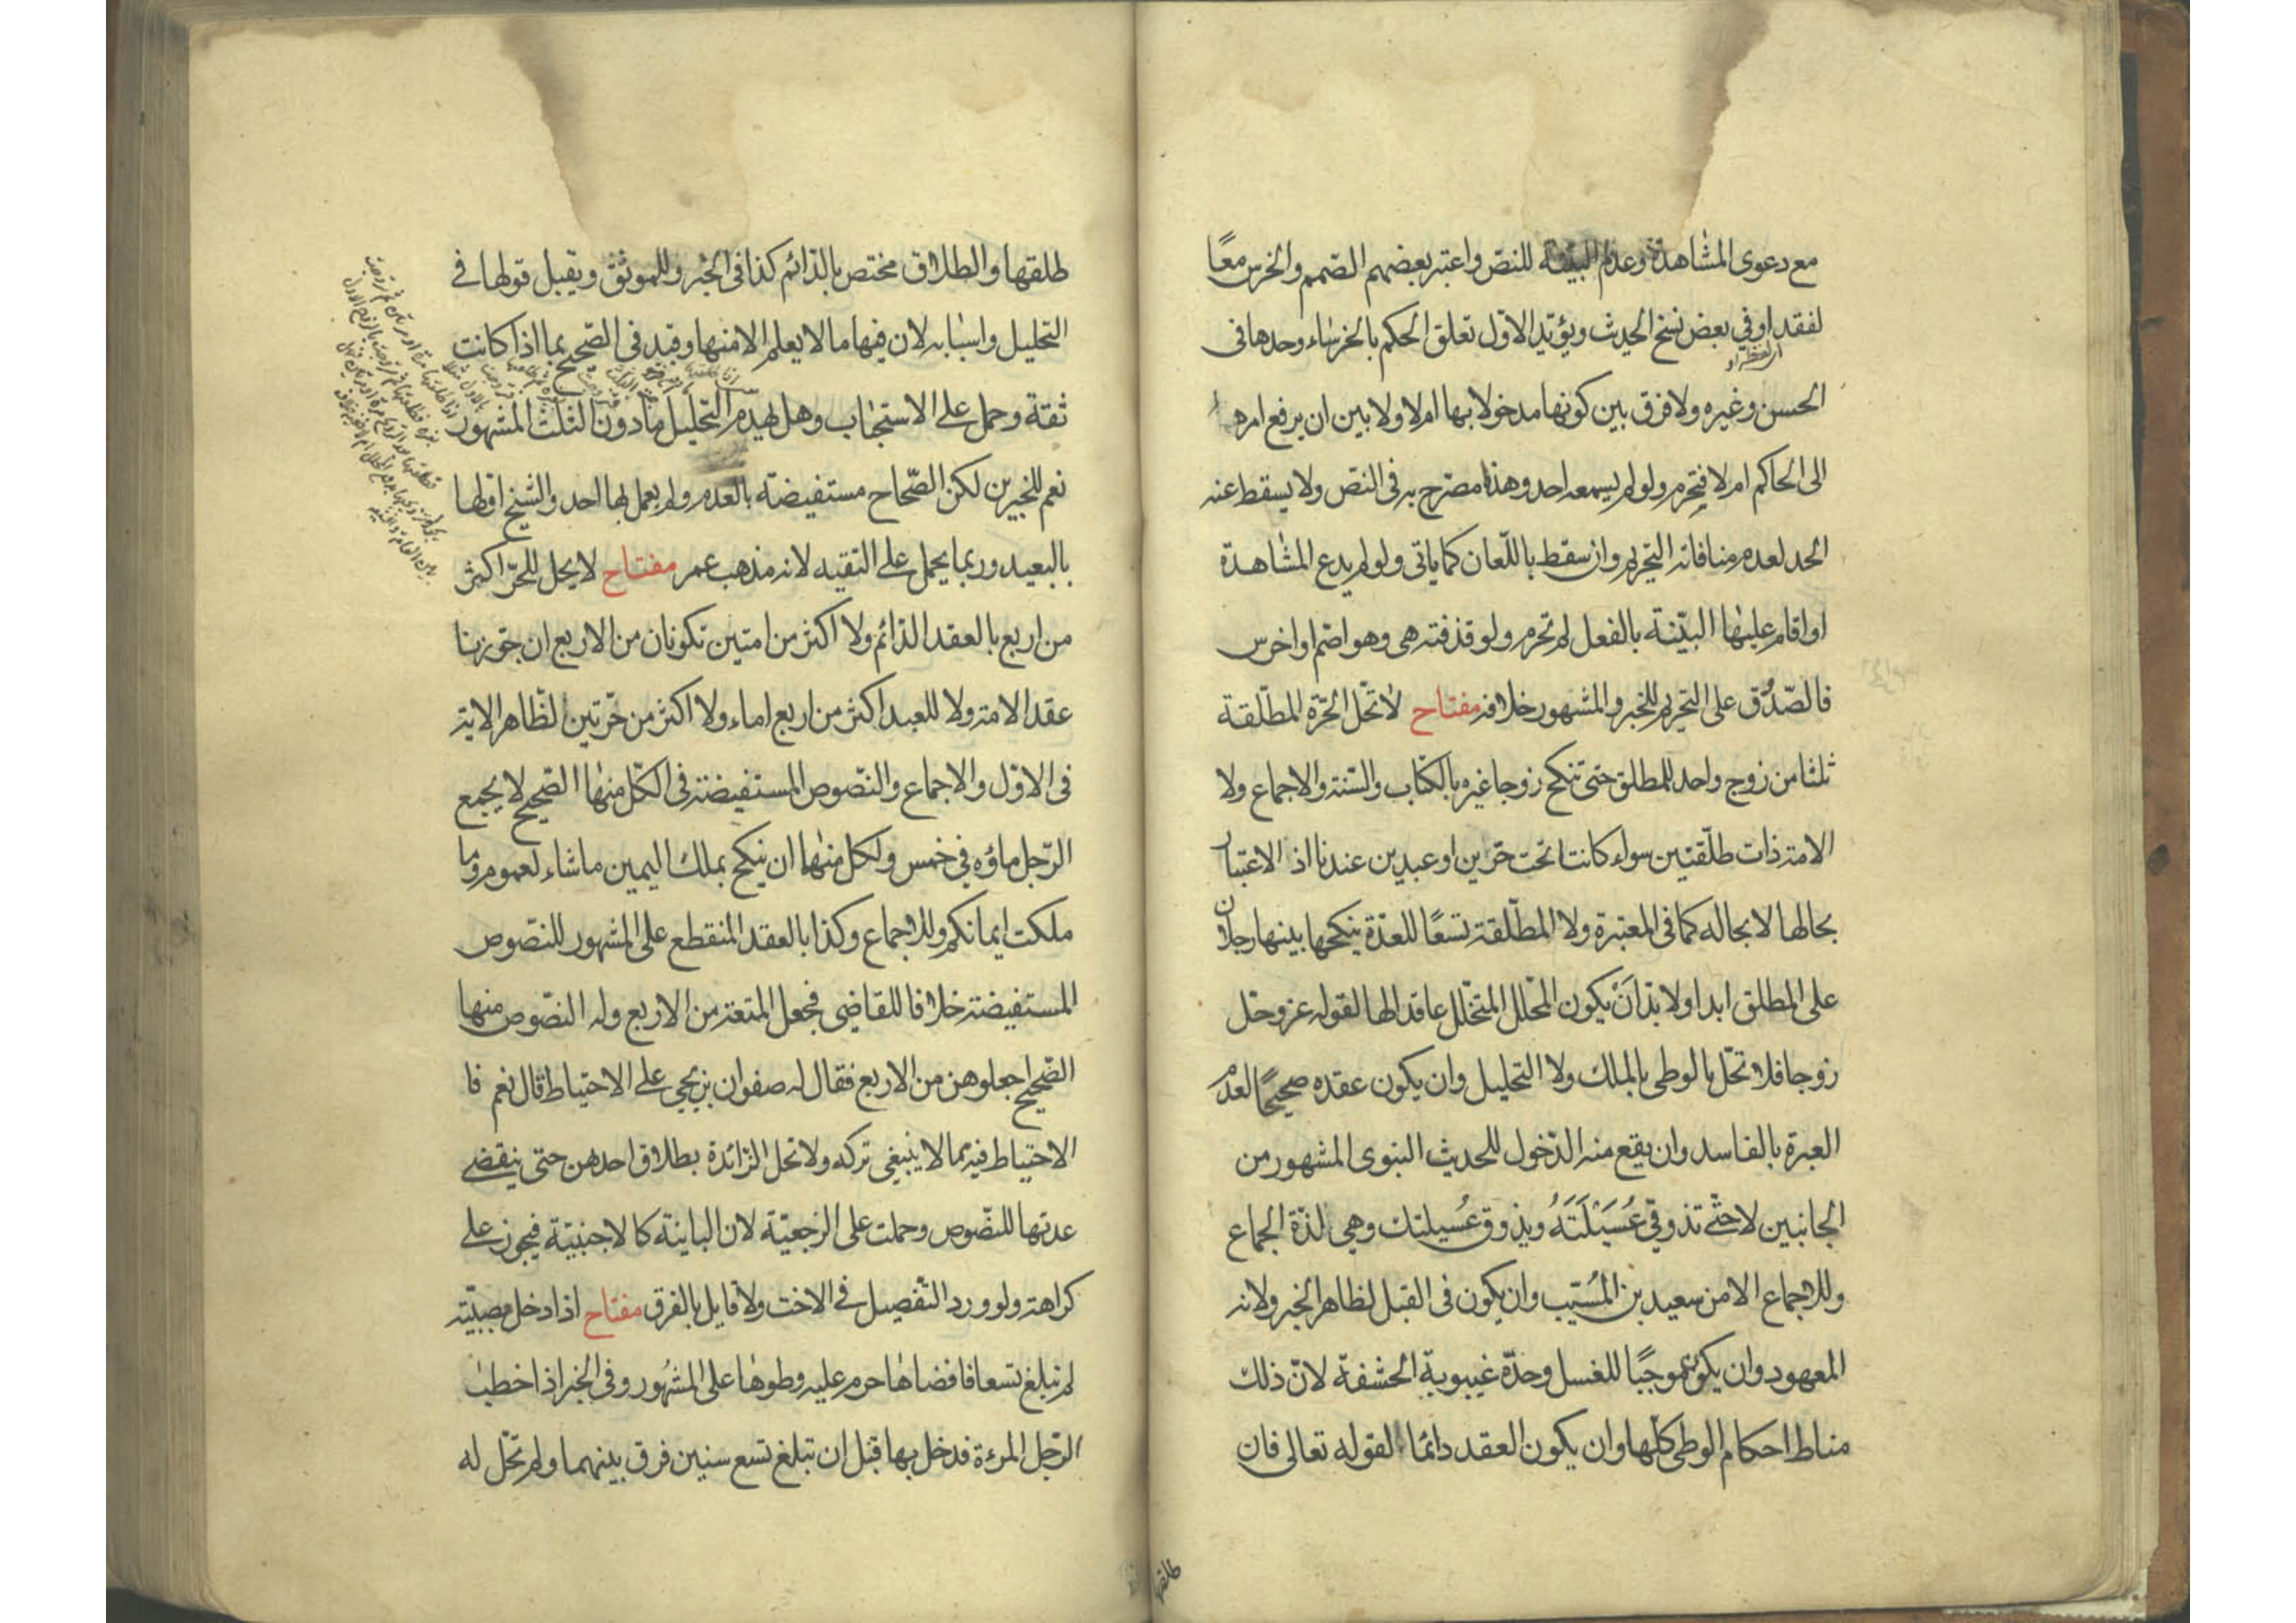 مع دعوى المشاهدة وعدم البينة للنص واعتبر بعضهم الصمم والخرس معًا
لفقد او في بعض نسخ الحديث ويؤيد الاول تعلق الحكم بالخرساء وحدها فى
الحسن وغيره ولا فرق بين كونها مدخولا بها ام لا ولا بين ان يرفع امرها
الى الحاكم ام لا فتحرم ولو لم يسمعه احد وهذا مصرح به فى النص ولا يسقط عنه
الحد لعدم منافاته التحريم وان سقط باللّعان كما ياتى ولو لم يدع المشاهدة
او اقام عليها البيّنة بالفعل لم تحرم ولو قذفته هى وهو اصم او اخرس
فالصّدوق على التحريم للخبر والمشهور خلافه مفتاح لا تحل الحرّة المطلّقة
ثلثا من زوج واحد للمطلق حتى تنكح زوجا غيره بالكتاب والسّنة والاجماع ولا
الامة ذات طلّقتين سواء كانتا تحت حرّين او عبدين عندنا اذ الاعتبار
بحالها لا بحاله كما فى المعتبرة ولا المطلّقة تسعًا للعدّة ينكحها بينها رجلان
على المطلق ابدا ولا بدّ انْ يكون المحلل المتخلل عاقدا لها لقوله عز وجل
زوجا فلا تحل بالوطى بالملك ولا التحليل وان يكون عقده صحيحًا لعدم
العبرة بالفاسد وان يقع منه الدّخول للحديث النبوى المشهور من
الجانبين لا حتّى تذوقي عُسَيْلَتَهُ ويذوق عُسيلتك وهي لذّة الجماع
وللاجماع الا من سعيد بن المُسيّب وان يكون فى القبل لظاهر الخبر ولانه
المعهود وان يكون موجبًا للغسل وحدّه غيبوبة الحشفة لانّ ذلك
مناط احكام الوطى كلّها وان يكون العقد دائمًا لقوله تعالى فان
طلقها
طلقها والطلاق مختص بالدّائم كذا فى الخبر وللموثق ويقبل قولها في
التحليل واسبابه لان فيها ما لا يعلم الا منها وقيد فى الصّحيح بما اذا كانت
ثقة وحمل على الاستحباب وهل يهدم التحليل ما دون الثلث المشهور
نعم للخبرين لكن الصّحاح مستفيضة بالعدم ولم يعمل بها احد والشيخ اوّلها
بالبعيد وربما يحمل على التقيه لانه مذهب عمر مفتاح لا يحل للحرّ اكثر
من اربع بالعقد الدّائم ولا اكثر من امتين تكونان من الاربع ان جوّزنا
عقد الامة ولا للعبد اكثر من اربع اماء ولا اكثر من حرّتين لظاهر الاية
فى الاوّل والاجماع والنّصوص المستفيضة فى الكلّ منها الصّحيح لا يجمع
الرّجل ماؤه في خمس ولكل منها ان ينكح بملك اليمين ما شاء لعموم وما
ملكت ايمانكم وللاجماع وكذا بالعقد المنقطع على المشهور للنصوص
المستفيضة خلافا للقاضى فجعل المتعة من الاربع وله النّصوص منها
الصّحيح اجعلوهن من الاربع فقال له صفوان بن يحيى على الاحتياط قال نعم فا
الاحتياط فيه مما لا ينبغى تركه ولا تحل الزّائدة بطلاق احدهن حتى ينقضى
عدتها للنصّوص وحملت على الرّجعيّة لان الباينة كالاجنبيّة فيجوز على
كراهة ولو ورد التّفصيل في الاخت ولا قايل بالفرق مفتاح اذا دخل بصبيّة
لم تبلغ تسعا فافضاها حرم عليه وطوها على المشهور وفى الخبر اذا خطب
الرّجل المرءة فدخل بها قبل ان تبلغ تسع سنين فرق بينهما ولم تحل له